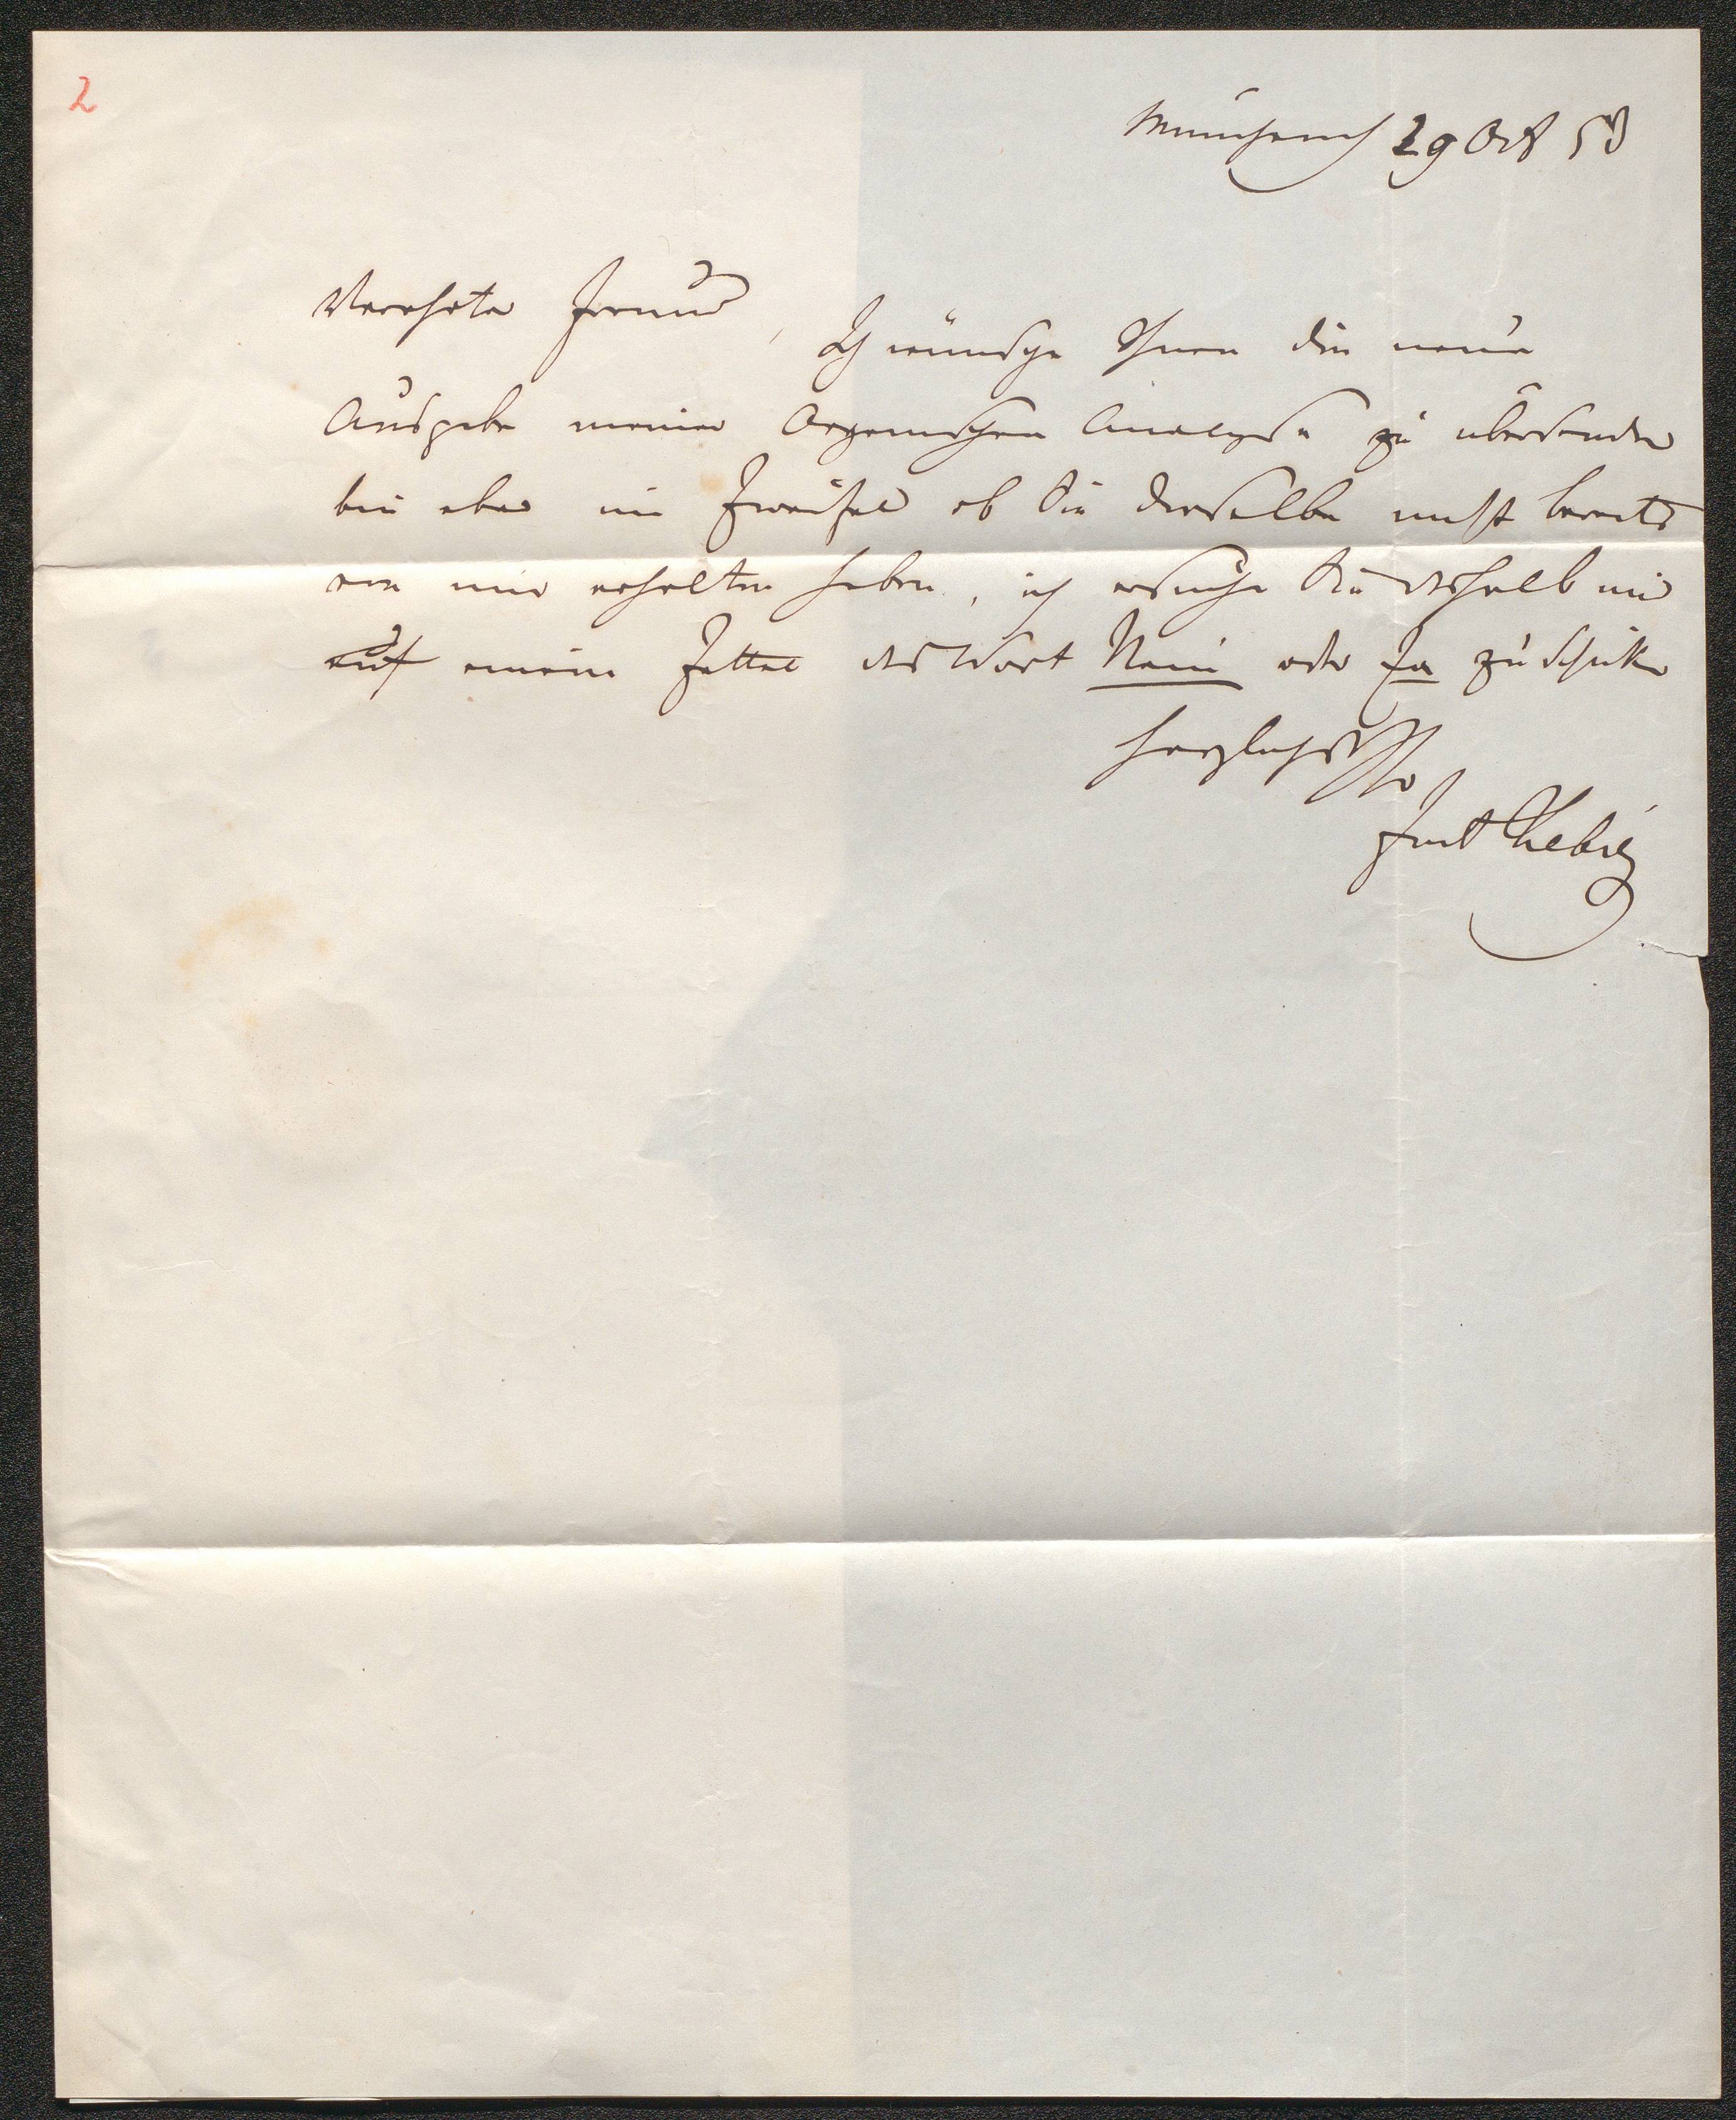 2
München 29 Oct 53
Verehrter Freund,
Ich wünsche Ihnen die neue
Ausgabe meiner Organischen Analyse zu übersenden
bin aber im Zweifel ob Sie dieselbe nicht bereits
von mir erhalten haben, ich ersuche Sie deshalb mir
auf einem Zettel das Wort Nein oder Ja zu schicken
herzlichst Ihr
Just Liebig